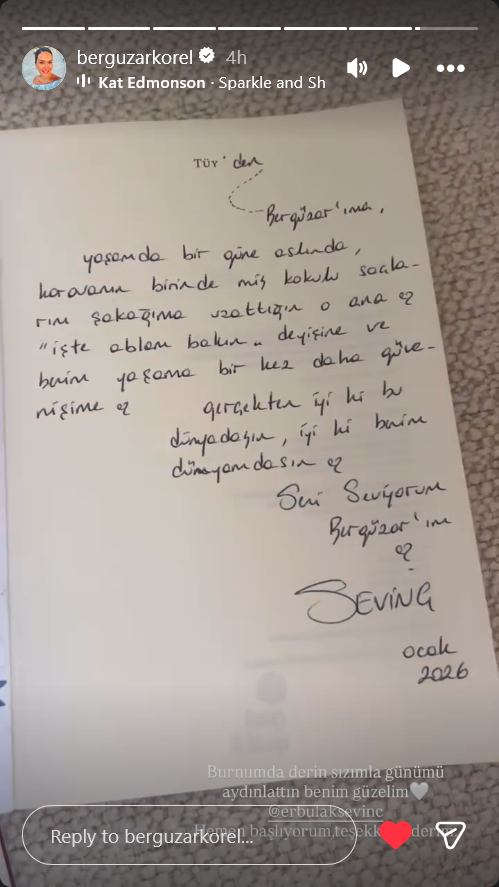 berguzarkorel 4h
Kat Edmonson · Sparkle and Sh
TÜY'den
Bergüzar'ıma,
yaşamda bir güne aslında,
karavanın birinde mis kokulu saçla-
rını şakağıma uzattığın o ana
"işte ablam bakın" deyişine ve
benim yaşama bir kez daha güve-
nişime
gerçekten iyi ki bu
dünyadasın, iyi ki benim
dünyamdasın
Seni Seviyorum
Bergüzar'ım
SEVİNÇ
ocak
2026
Burnumda derin sızımla günümü
aydınlattın benim güzelim🤍
@erbulaksevinc
Hemen başlıyorum,teşekk derim
Reply to berguzarkorel...